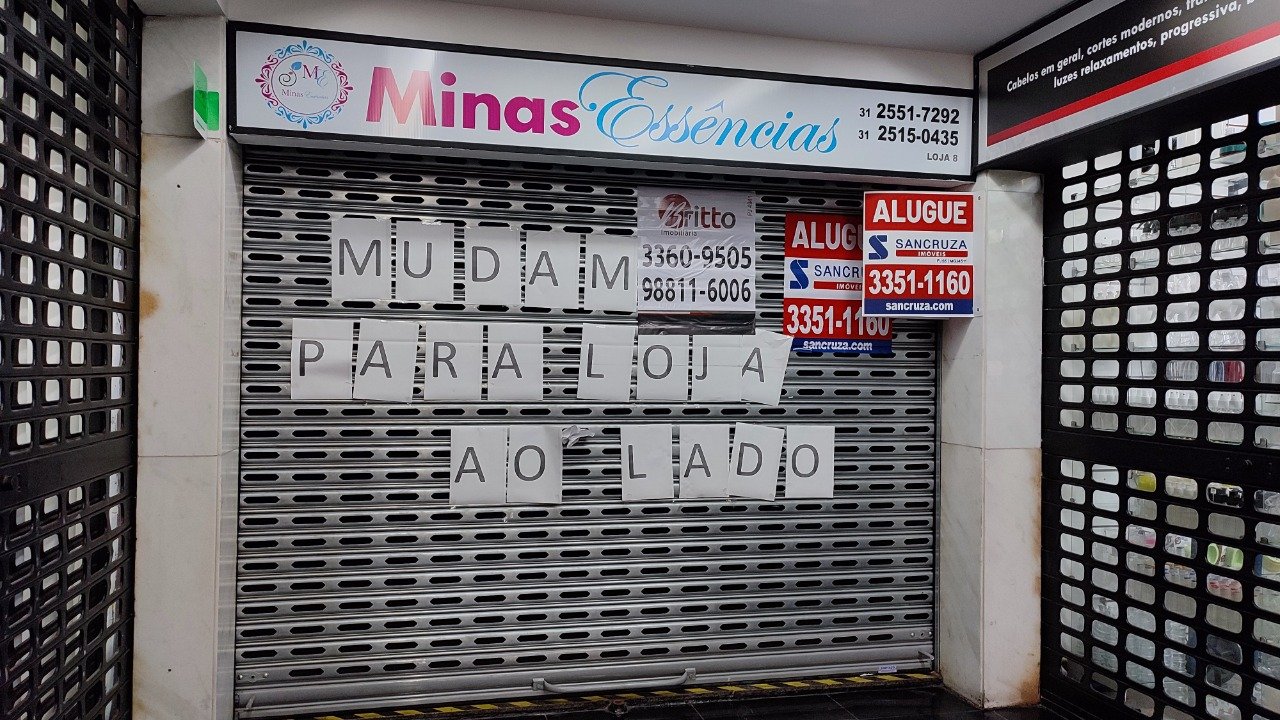 Minas Essências
31 2551-7292
31 2515-0435
LOJA 8
Cabelos em geral, cortes modernos,
luzes relaxamentos, progressiva,
MUDAM
PARA LOJA
AO LADO
Britto
imobiliária
3360-9505
98811-6006
ALUGU
SANCRUZA
IMÓVEIS
3351-1160
sancruza.com
ALUGUE
SANCRUZA
IMÓVEIS
3351-1160
sancruza.com